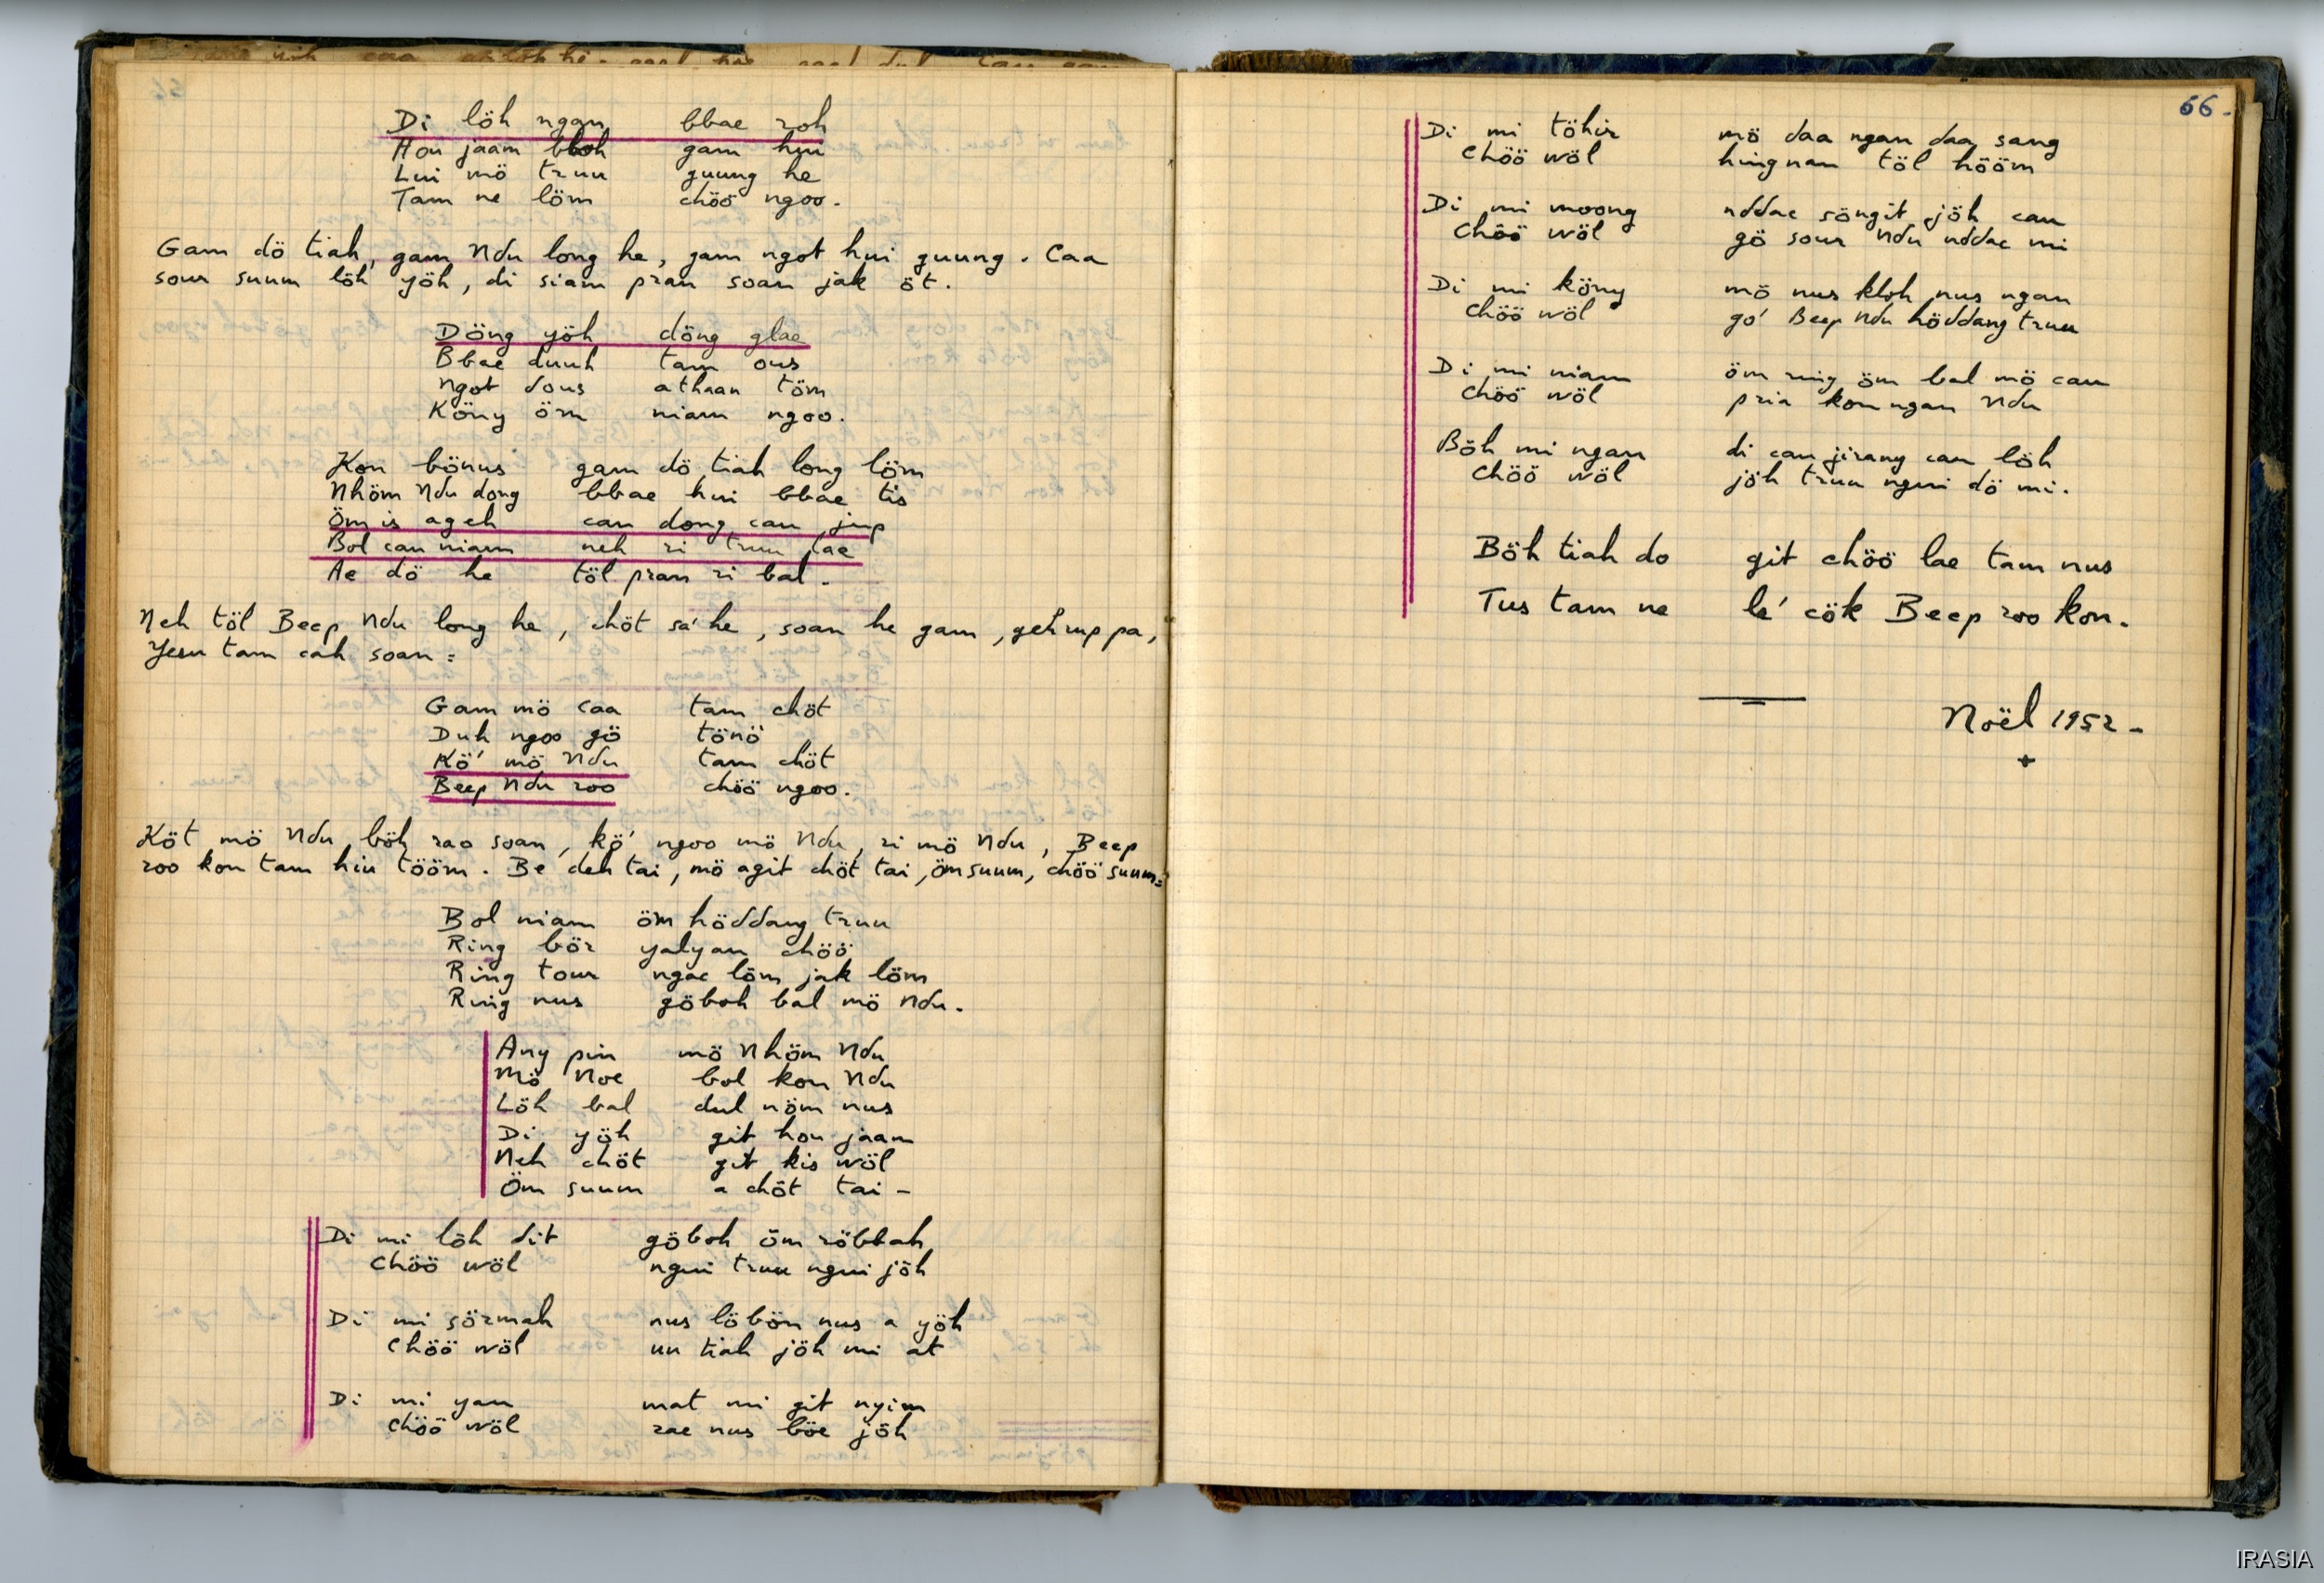 Di löh ngan bbae roh
Hou jaam bboh gam huu
Lui mö truu guung he
Tam ne löm chöö ngoo.
Gam dö tiah, gam Ndu long he, gam ngot hui guung. Caa
sour suum löh yöh, di siam pran soan jak öt.
Döng yöh döng glae
Bbae duuh tam ous
Ngot dous athaan töm
Köny öm niam ngoo.
Kon bönus gam dö tiah long löm
Nhöm Ndu dong bbae hui bbae tis
Öm is ageh can dong can jup
Bol can niam neh ri truu lae
Ae dö he töl pran ri bal.
Neh töl Beep Ndu long he, chöt sa' he, soan he gam, geh mp pa,
Yesu tam cah soan :
Gam mö Caa tam chöt
Duh ngoo gö tönö
Kö' mö Ndu tam chöt
Beep Ndu roo chöö ngoo.
Köt mö Ndu böh rao soan, kö' ngoo mö Ndu, ri mö Ndu, Beep
roo kon tam hiu tööm. Be deh tai, mö agit chöt tai, öm suum, chöö suum :
Bol niam öm höddang truu
Ring bör yalyan chöö
Ring tour ngac löm jak löm
Ring nus göboh bal mö Ndu.
Any pin mö Nhöm Ndu
Mö Noe bol kon Ndu
Löh bal dul nöm nus
Di yöh git hou jaam
Neh chöt git kis wöl
Öm suum a chöt tai -
Di mi löh dit göboh öm röbbah
Chöö wöl ngui truu ngui jöh
Di mi sörmah nus löbön nus a yöh
Chöö wöl un tiah jöh mi at
Di mi yan mat mi git nyim
Chöö wöl rae nus böe jöh
66.
Di mi töhir mö daa ngan daa sang
Chöö wöl hingnam töl hööm
Di mi moong nddae söngit jöh can
Chöö wöl gö sour Ndu nddae mi
Di mi köny mö nus kloh nus ngan
Chöö wöl gö' Beep Ndu höddang truu
Di mi niam öm ring öm bal mö can
Chöö wöl pria kon ngan Ndu
Böh mi ngan di can jirang can löh
Chöö wöl jöh truu ngui dö mi.
Böh tiah do git chöö lae tam nus
Tus tam ne le' cök Beep roo kon.
Noël 1952 -
+
IRASIA